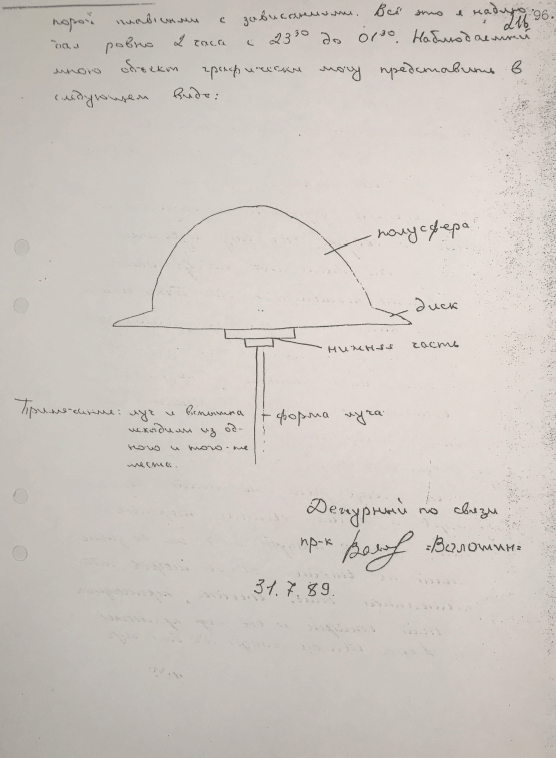 порой плавными с зависаниями. Всё это я наблю-
дал ровно 2 часа с 23³⁰ до 01³⁰. Наблюдаемый
мною объект графически могу представить в
следующем виде:
96.
полусфера
диск
нижняя часть
форма луча
Примечание: луч и вспышка
исходили из од-
ного и того-же
места.
Дежурный по связи
пр-к =Волошин=
31.7.89.